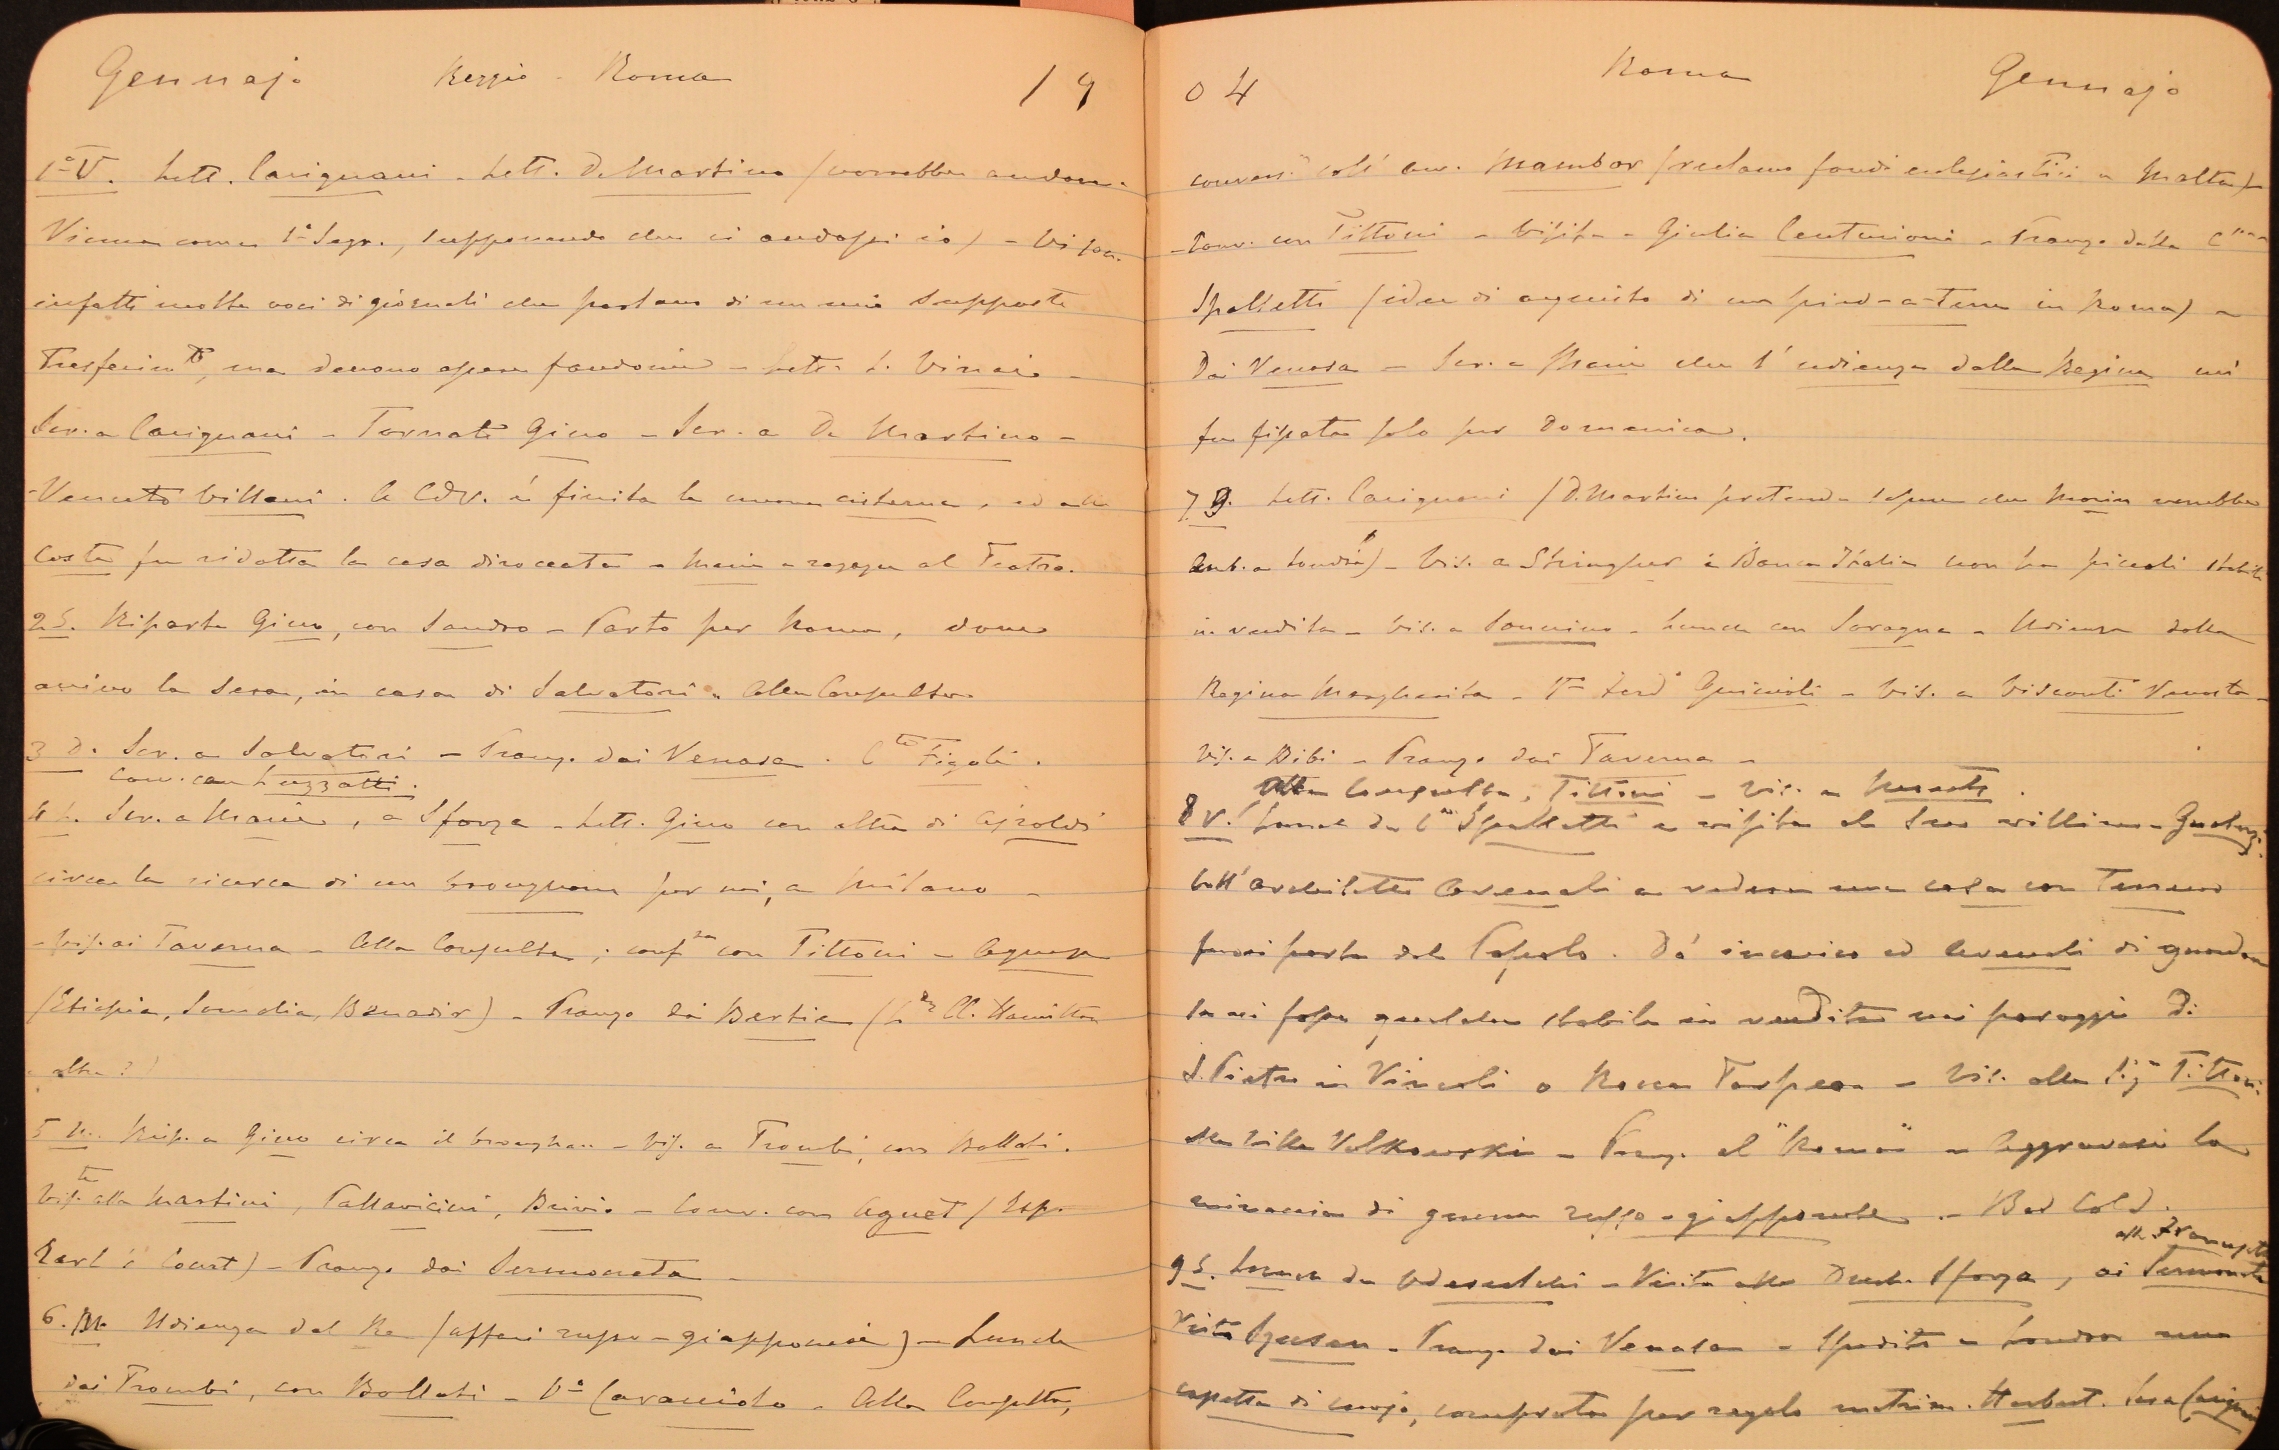 Gennajo Reggio - Roma 19
1° V. Lett. Carignani - Lett. De Martino (vorrebbe andare a
Vienna come 1° Segr., supponendo che ci andassi io) - Vi sono
infatti molte voci di giornali che parlano di un mio supposto
Trasferim.to, ma devono essere fandonie - Lett. L.
Scr. a Carignani - Tornato Gino - Scr. a De Martino -
Venuto Villani. A CdV. è finita la nuova cisterna, ed alla
Costa fu ridotta la casa diroccata - Marie e ragazze al Teatro.
2 S. Riparte Gino, con Sandro - Parto per Roma, dove
arrivo la sera, in casa di Salvatori. Alla Consulta
3 D. Scr. a Salvatori - Pranzo dai Venosa. C.te Figoli.
Conv. con Luzzatti.
4 L. Scr. a Marie, a Sforza - Lett. Gino con altra di Airoldi
circa la ricerca di un brougham per mi, a Milano -
- Vis. ai Taverna - Alla Consulta; conf.za con Tittoni - Agnesa
(Etiopia, Somalia, Benadir) - Pranzo dai Bertie (L.d Cl. Hamilton
altri?)
5 M. Risp. a Gino circa il brougham - Vis. a Trombi, con Bollati.
Vis.te alla Martini, Pallavicini, Brivio - Conv. con Aguet (Esp.
Earl's Court) - Pranzo dai Sermoneta -
6. M. Udienza del Re (affari russo-giapponesi) - Lunch
dai Trombi, con Bollati - Caracciolo - Alla Consulta,
04 Roma Gennajo
convers. coll' avv. Mambor (reclamo fondi eclesiastici a Malta) -
- Conv. con Tittoni - Visita a Giulia Centurioni - Pranzo dalla C.ssa
Spalletti (idea di acquisto di un pied-a-terre in Roma) -
Dai Venosa - Scr. a Marie che l'udienza dalla Regina mi
fu fissata solo per Domenica.
7 G. Lett. Carignani (D. Martino pretende sapere che Morin verrebbe
Amb. a Londra) - Vis. a Stringher: la Banca Italia non ha piccoli stabili
in vendita - Vis. a Sonnino - Lunch con Soragna - Udienza dalla
Regina Margherita - Ferd° Guiccioli - Vis. a Visconti Venosta -
Vis. a Bibi - Pranzo dai Taverna -
Alla Consulta, Tittoni - Vis. a
8 V. Lunch da C.ssa Spalletti e visita al suo villino - Gualterio.
Coll' architetto Cavenati a vedere una casa con Terreno
fuori porta del Popolo. Do incarico ad Avenali di guardare
se vi fosse qualche stabile in vendita nei paraggi di
S. Pietro in Vincoli o Rocca Tarpea - Vis. alla Sig.ra Tittoni.
alla Villa Volkowski - Pranzo al "Roma" - Aggravasi la
minaccia di guerra russo-giapponese - Bad Cold.
alla
9 S. Lunch da Odescalchi - Visita alla Duch. Sforza, ai Sermoneta
Visto - Pranzo dai Venosa - Spedita a Londra una
cassetta di cuojo, comprata per regalo matrim. Herbert. Scr. a Carignani